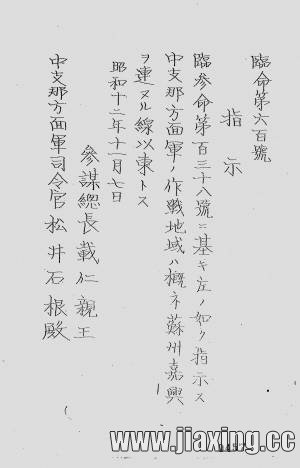 臨命第六百號
指示
臨参命第百三十八號ニ基キ左ノ如ク指示ス
中支那方面軍ノ作戰地域ハ概ネ蘇州嘉興
ヲ連ヌル線以東トス
昭和十二年十一月七日
参謀總長載仁親王
中支那方面軍司令官松井石根殿
www.jiaxing.cc